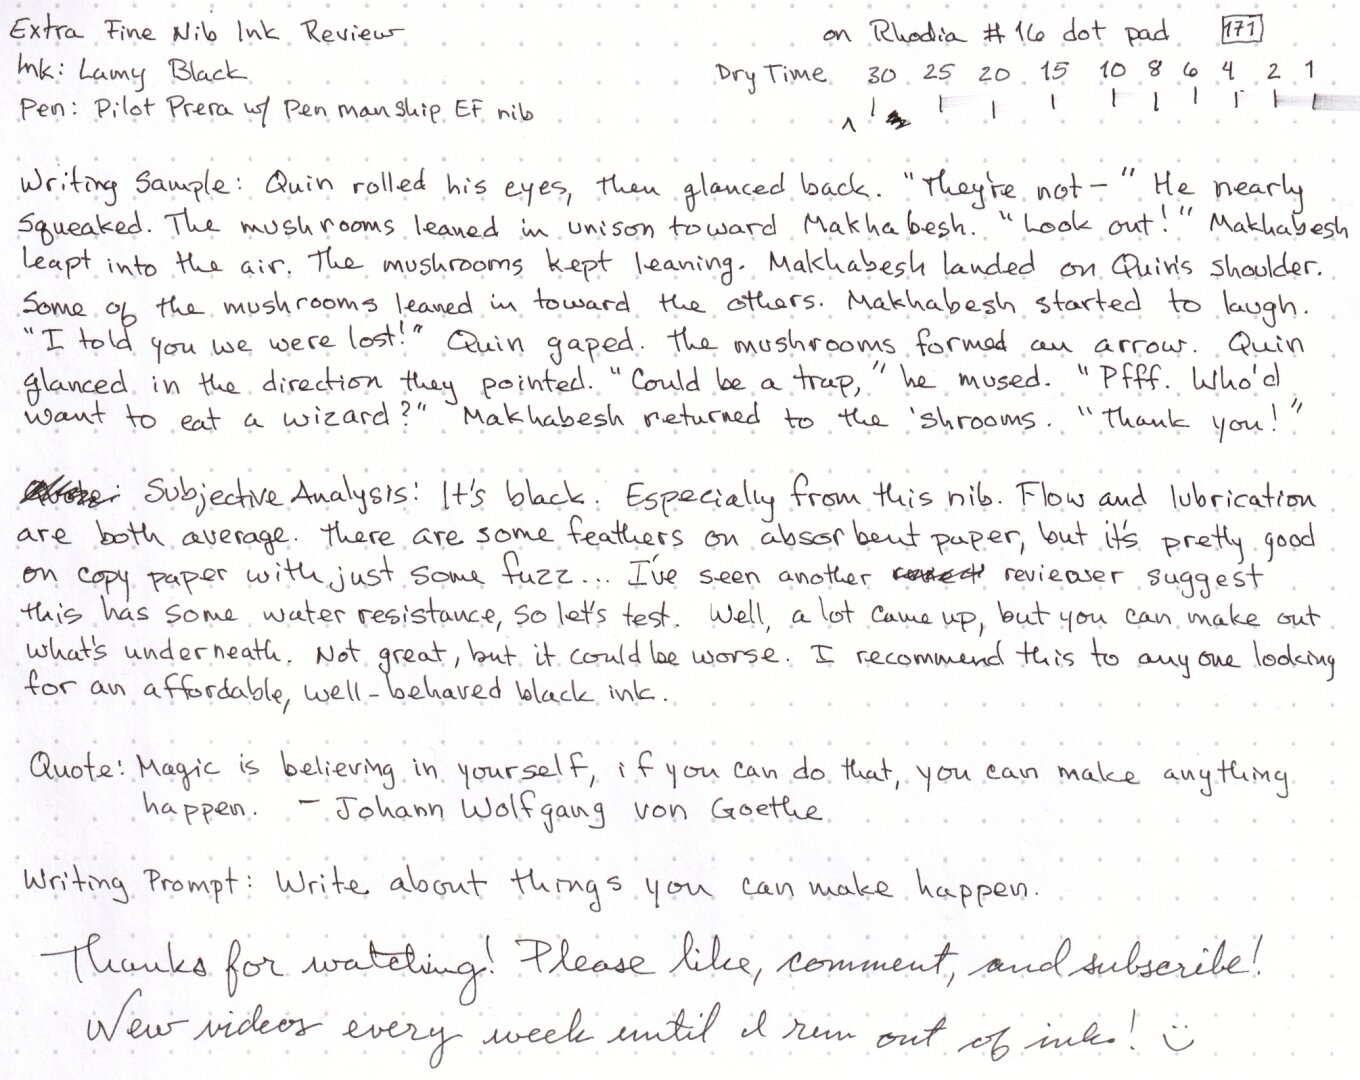 Extra Fine Nib Ink Review on Rhodia #16 dot pad 171
Ink: Lamy Black Dry Time 30 25 20 15 10 8 6 4 2 1
Pen: Pilot Prera w/ Penmanship EF nib
Writing Sample: Quin rolled his eyes, then glanced back. "They're not-" He nearly
squeaked. The mushrooms leaned in unison toward Makhabesh. "Look out!" Makhabesh
leapt into the air. The mushrooms kept leaning. Makhabesh landed on Quin's shoulder.
Some of the mushrooms leaned in toward the others. Makhabesh started to laugh.
"I told you we were lost!" Quin gaped. The mushrooms formed an arrow. Quin
glanced in the direction they pointed. "Could be a trap," he mused. "Pfff. Who'd
want to eat a wizard?" Makhabesh returned to the 'shrooms. "Thank you!"
Subjective Analysis: It's black. Especially from this nib. Flow and lubrication
are both average. There are some feathers on absorbent paper, but it's pretty good
on copy paper with just some fuzz... I've seen another reviewer suggest
this has some water resistance, so let's test. Well, a lot came up, but you can make out
what's underneath. Not great, but it could be worse. I recommend this to anyone looking
for an affordable, well-behaved black ink.
Quote: Magic is believing in yourself, if you can do that, you can make anything
happen. - Johann Wolfgang von Goethe
Writing Prompt: Write about things you can make happen.
Thanks for watching! Please like, comment, and subscribe!
New videos every week until I run out of inks! :)